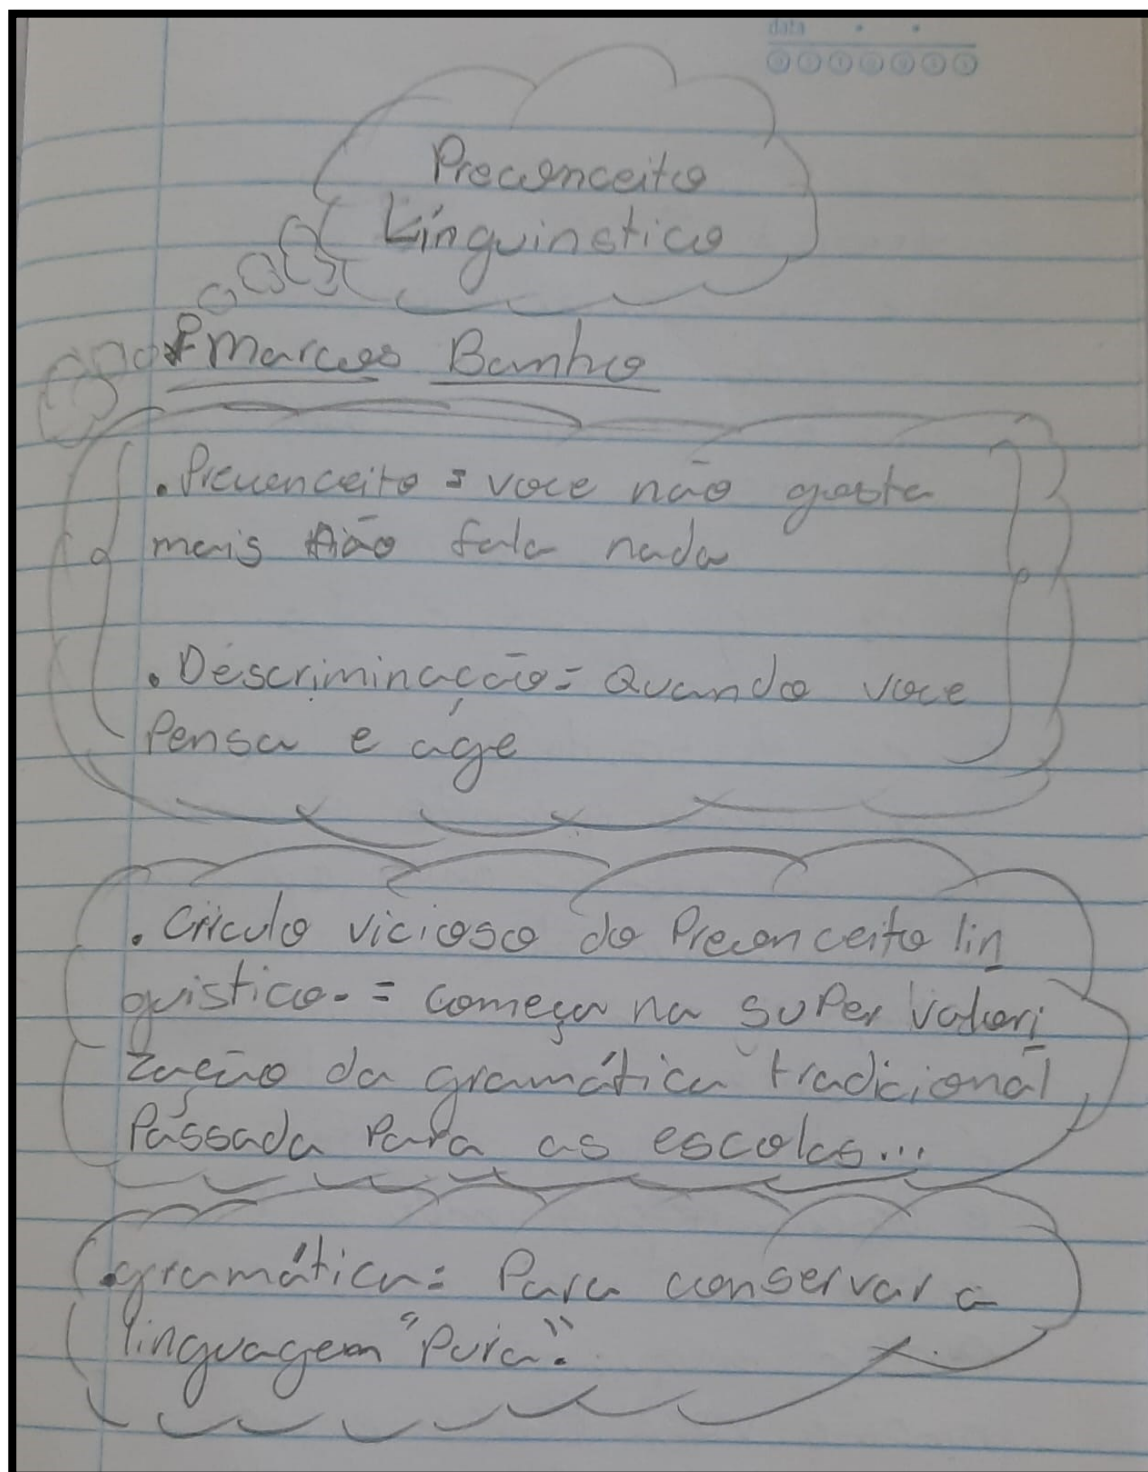 data
Preconceito
Línguinstico
Marcos Banho
. Preconceito = voce não gosta
mais não fala nada
. Descriminação = Quando voce
Pensa e age
. Circulo vicioso do Preconceito lin
guistico. = começa na super valori
zação da gramática tradicional
Passada Para as escolas...
.gramática = Para conservar a
linguagem "Pura".